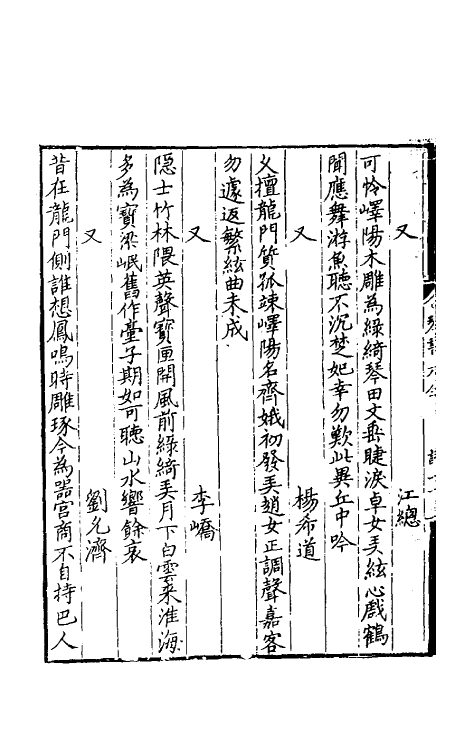 又
江總
可怜嶧陽木雕為綠綺琴田文垂睫淚卓女弄絃心戲鶴
聞應舞游魚聽不沉楚妃幸勿歎此異丘中吟
又
楊希道
乂擅龍門質孤竦嶧陽名齊娥初發弄趙女正調聲嘉客
勿遽返繁絃曲未成
又
李嶠
隱士竹林隈英聲寶匣開風前綠綺弄月下白雲来淮海
多為寶梁岷舊作臺子期如可聽山水響餘哀
又
劉允濟
昔在龍門側誰想鳳鳴時雕琢今為噐宫商不自持巴人